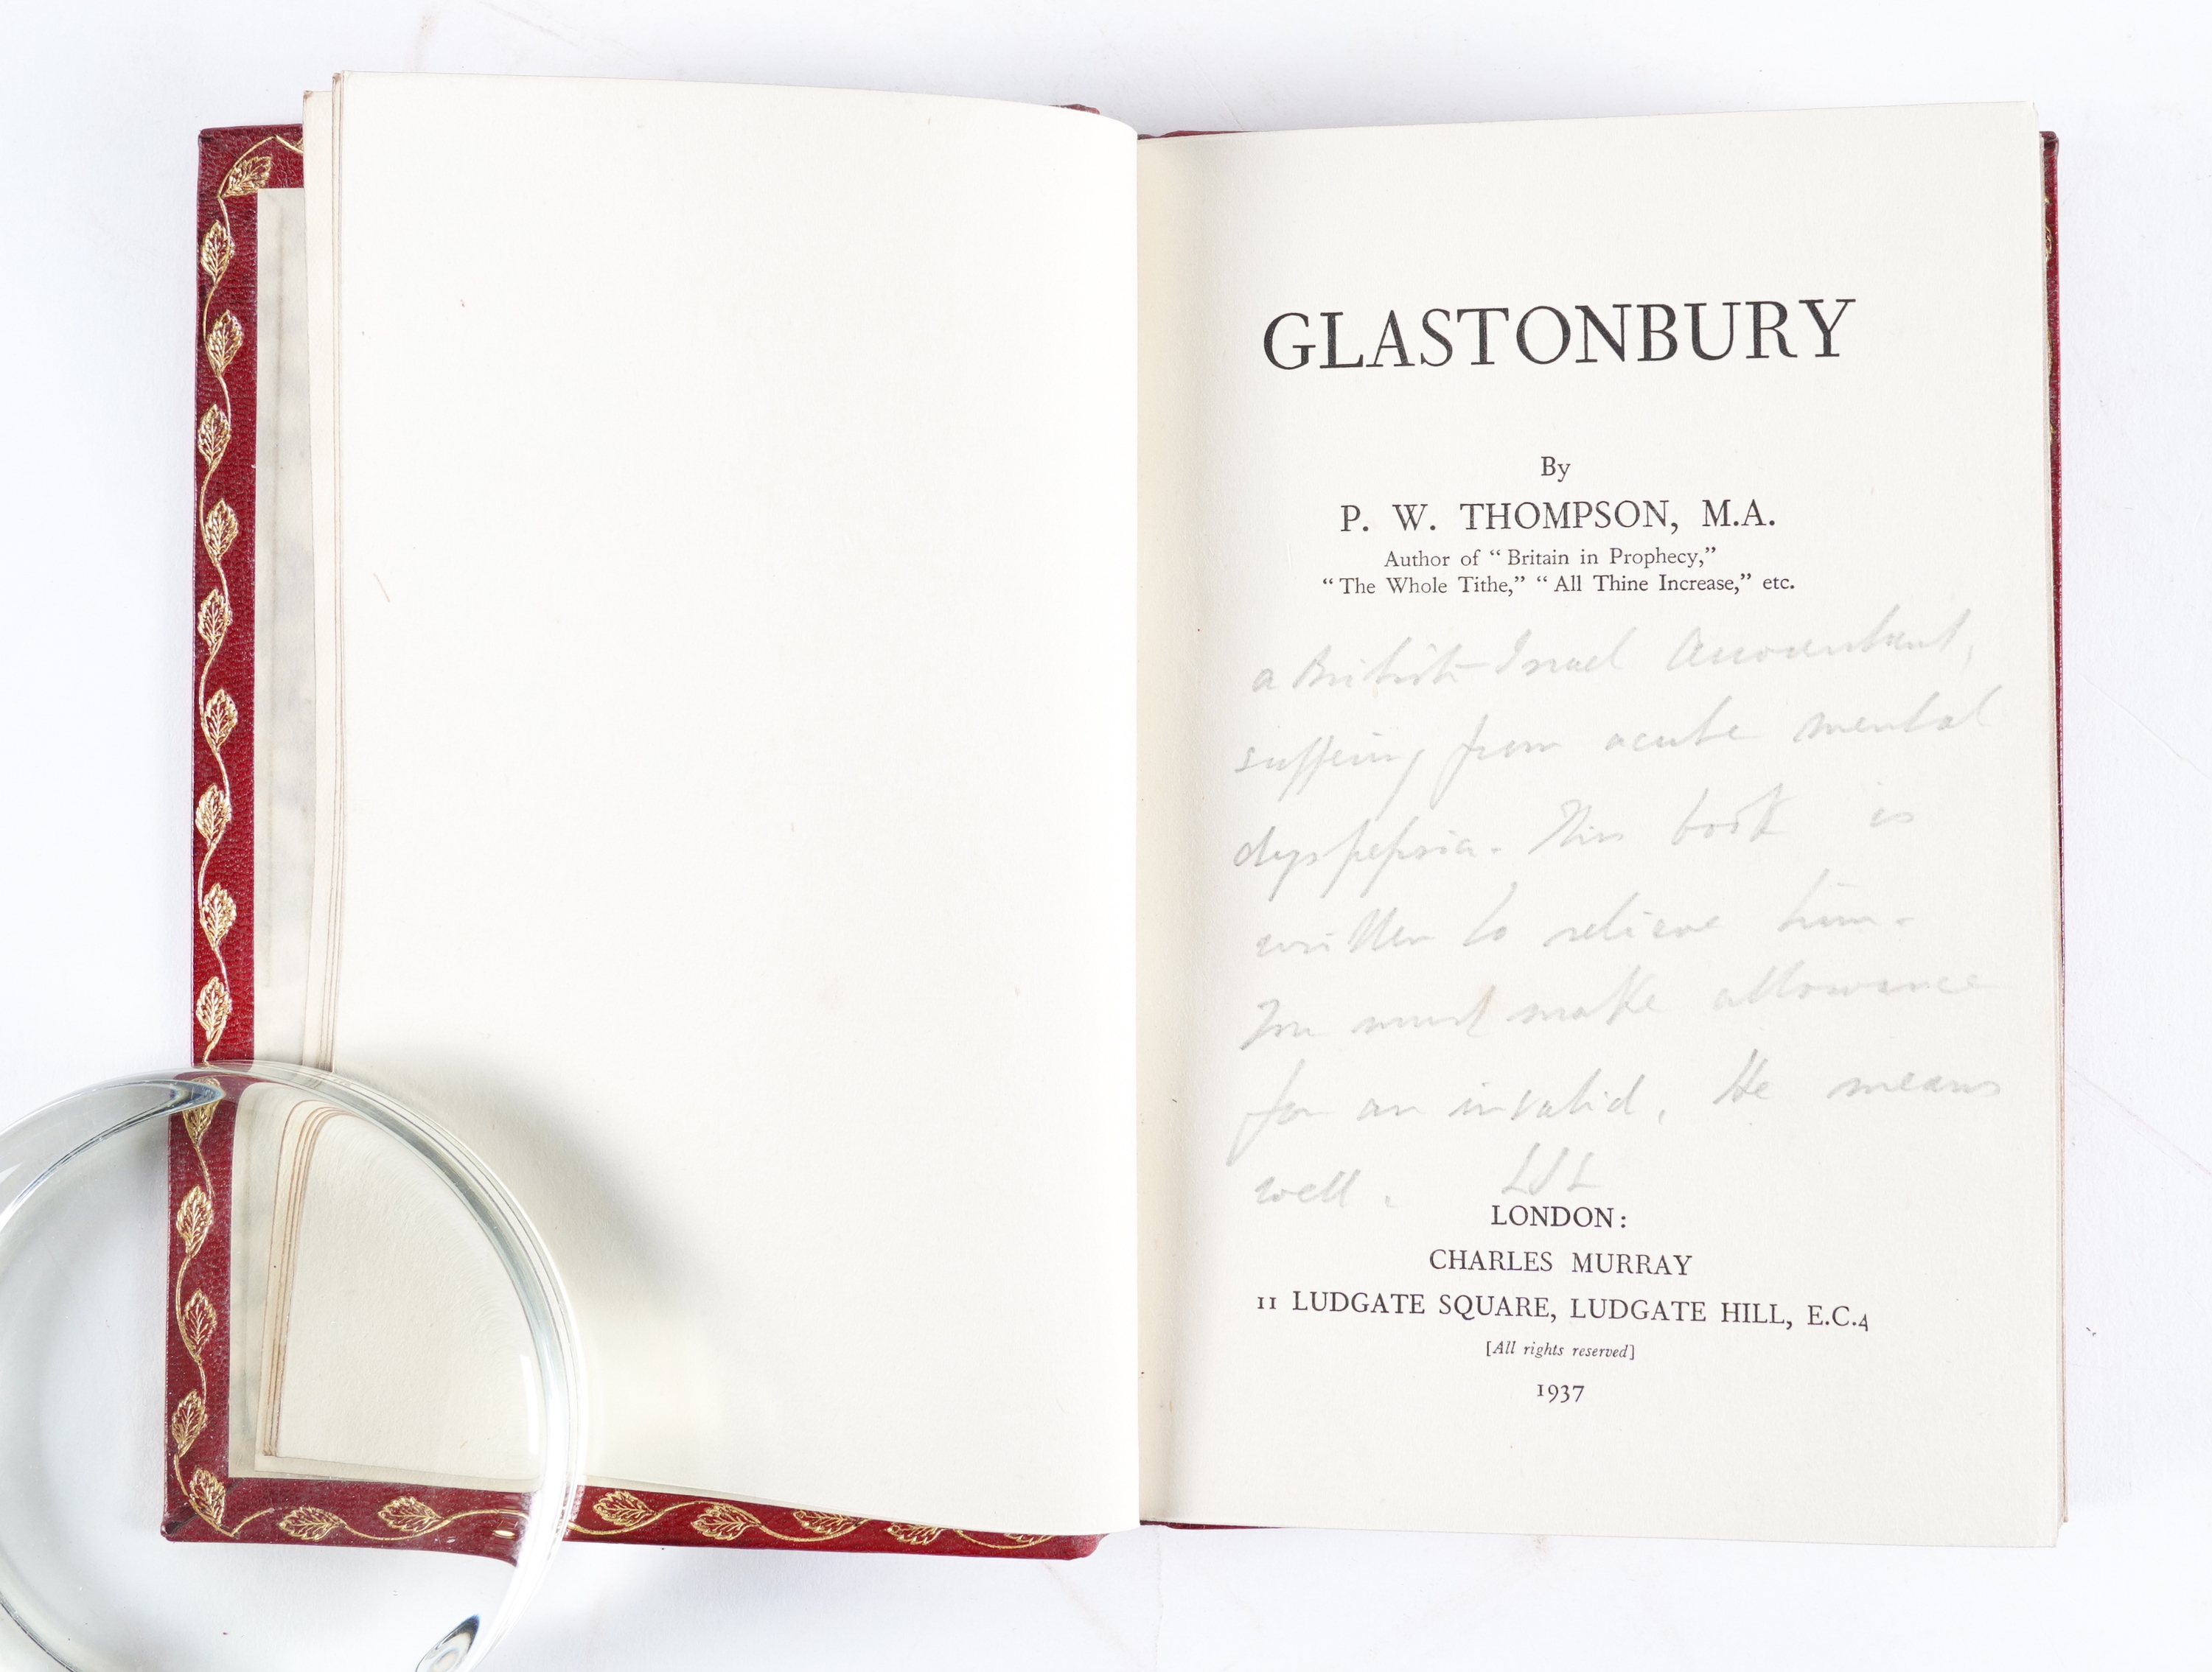 GLASTONBURY
By
P. W. THOMPSON, M.A.
Author of “Britain in Prophecy,”
“The Whole Tithe,” “All Thine Increase,” etc.
a British-Israel Accountant,
suffering from acute mental
dyspepsia. This book is
written to relieve him.
You must make allowance
for an invalid. He means
well.
LONDON:
CHARLES MURRAY
11 LUDGATE SQUARE, LUDGATE HILL, E.C.4
[All rights reserved]
1937